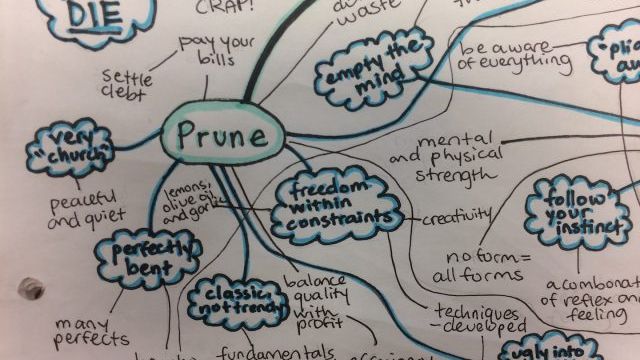 DIE
CRAP!
waste
pay your
bills
settle
debt
empty the
mind
be aware
of everything
Prune
very
"church"
peaceful
and quiet
mental
and physical
strength
lemons,
olive oil,
and garlic
freedom
within
constraints
creativity
follow
your
instinct
perfectly
bent
many
perfects
no form=
all forms
classic,
not trendy
balance
quality
with
profit
techniques
-developed
a combonat
of reflex an
feeling
fundamentals
ugly into